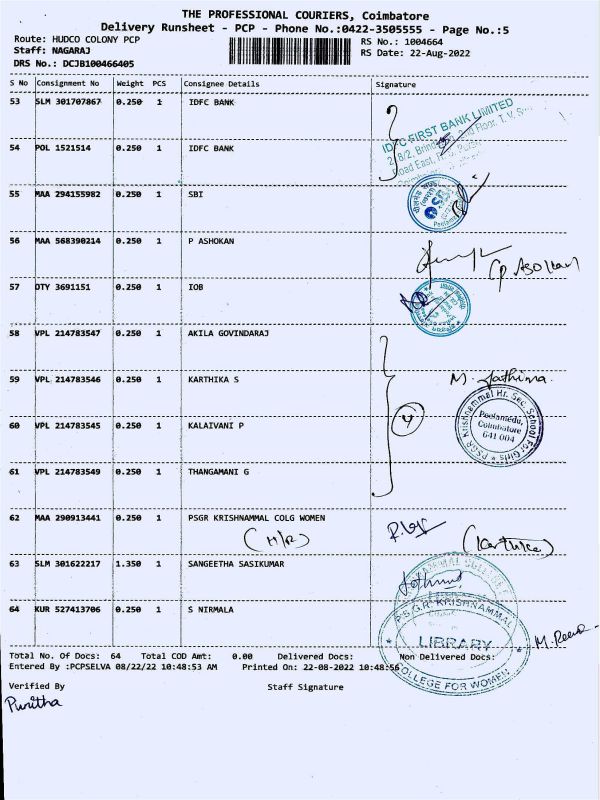 THE PROFESSIONAL COURIERS, Coimbatore
Delivery Runsheet - PCP - Phone No.:0422-3505555 - Page No.:5
Route: HUDCO COLONY PCP RS No.: 1004664
Staff: NAGARAJ RS Date: 22-Aug-2022
DRS No.: DCJB100466405
S No Consignment No Weight PCS Consignee Details Signature
53 SLM 301707867 0.250 1 IDFC BANK
IDFC FIRST BANK LIMITED
54 POL 1521514 0.250 1 IDFC BANK
55 MAA 294155982 0.250 1 SBI
56 MAA 568390214 0.250 1 P ASHOKAN
(P. ASOKAN
57 OTY 3691151 0.250 1 IOB
58 VPL 214783547 0.250 1 AKILA GOVINDARAJ
59 VPL 214783546 0.250 1 KARTHIKA S M. Fathima
P.S.G.R. Krishnammal Hr. Sec. School For Girls
Peelamedu,
Coimbatore
641 004
60 VPL 214783545 0.250 1 KALAIVANI P 4
61 VPL 214783549 0.250 1 THANGAMANI G
62 MAA 290913441 0.250 1 PSGR KRISHNAMMAL COLG WOMEN
(H/R) (Karthika)
63 SLM 301622217 1.350 1 SANGEETHA SASIKUMAR
64 KUR 527413706 0.250 1 S NIRMALA
P.S.G.R. KRISHNAMMAL
LIBRARY
COLLEGE FOR WOMEN
Total No. Of Docs: 64 Total COD Amt: 0.00 Delivered Docs: Non Delivered Docs:
Entered By :PCPSELVA 08/22/22 10:48:53 AM Printed On: 22-08-2022 10:48:56
Verified By Staff Signature
Punitha